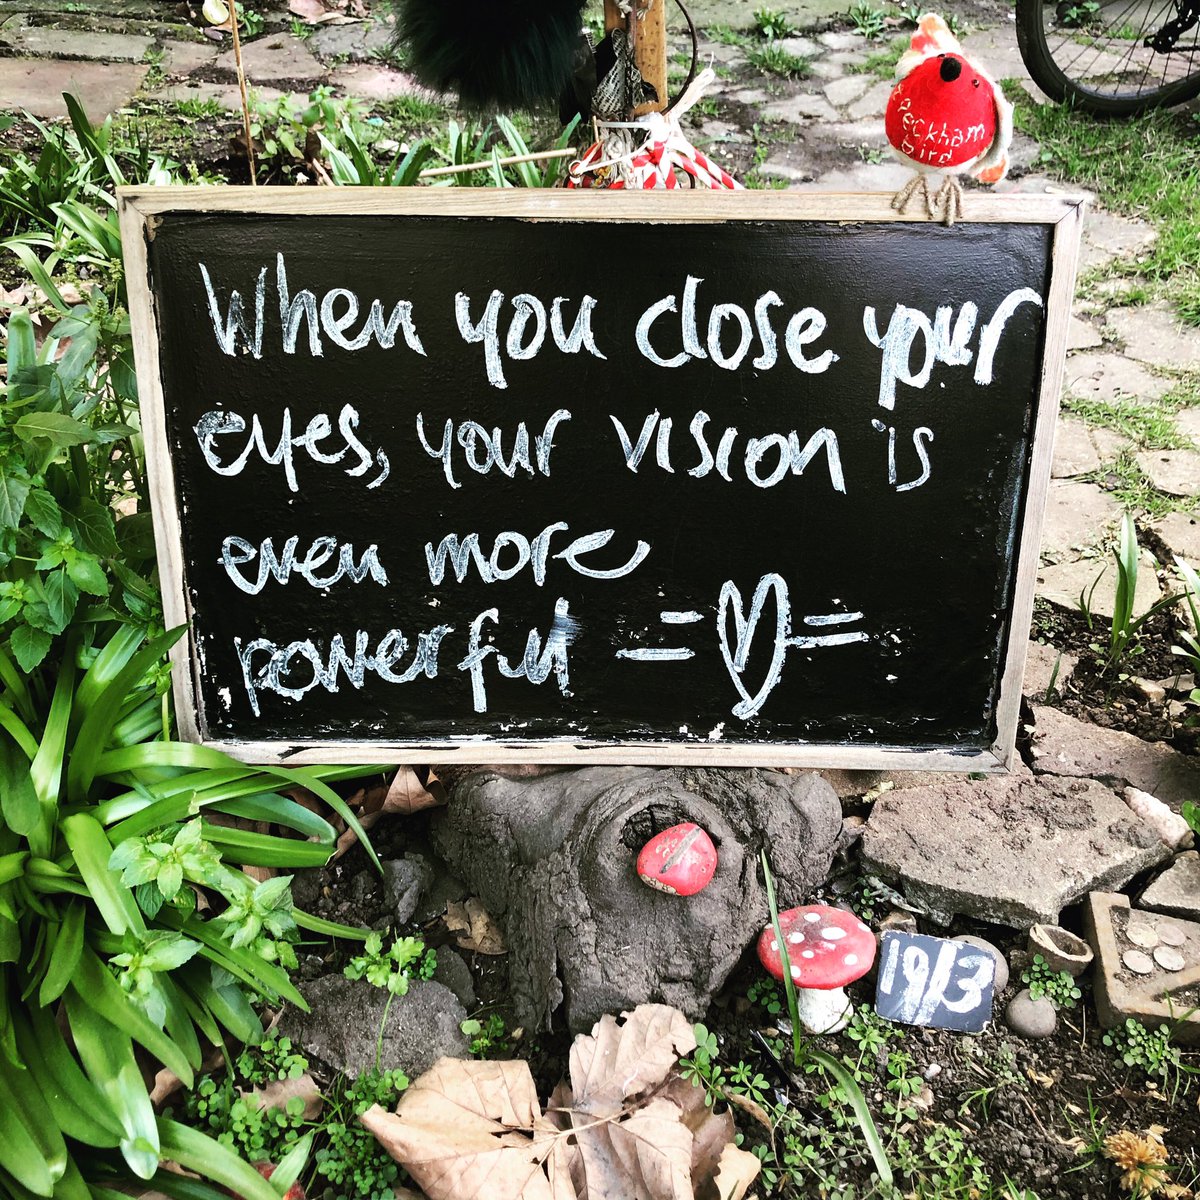 Peckham
Bird
When you close your
eyes, your vision is
even more
powerful =♡=